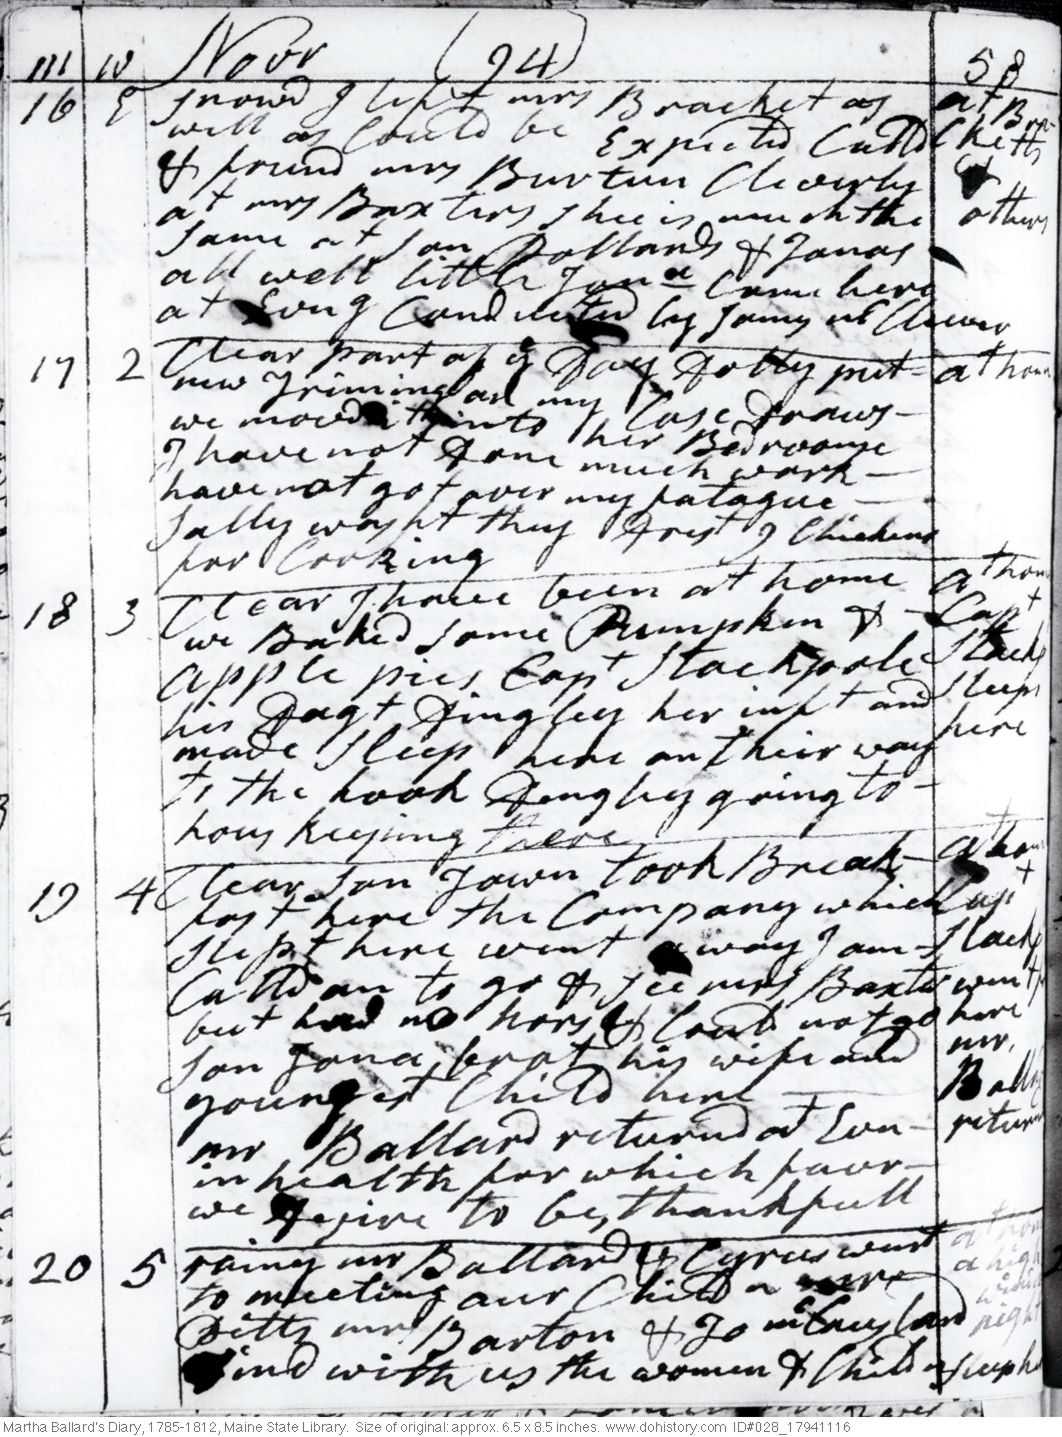 m w Novr (94) 58
16 E Snowd I left mrs Bracket as at Bra-
well as Could be Expected Calld Cketts
& found mrs Burtun Cleverly &
at mrs Baxters shee is much the others
same at son Pollards & Jonas
all well little Jona Came here
at Evng Conducted by Jamy
17 2 Clear part of ye Day Dolly put at home
new Triming on my Case Draws
we movd it into her Bedroome
I have not Done much work
have not got over my fatague
Sally washt they Drest 9 Chickens
for Cooking
18 3 Clear I have been at home at home
we Baked some Pumpken & Capt
apple pies Capt Stackpole Stackp
his Dagt Dingley her inft and sleeps
made sleep here on their way here
to the hook Dingley going to
hous keeping there
19 4 Clear son Town took Break- at home
fast here the Company which Capt
slept here went away I am Stackp
Calld on to go & see mrs Baxter went
but had no hors & Could not go here
son Jona brot his wife and mr
youngest Child here Balld
mr Ballard returnd at Evn return
in health for which favr
we desire to be thankfull
20 5 rainy mr Ballard & Cyrus went
to meeting our Childn were
Ditto mr Barton & Jo
Dind with us the women & Childn sleep
Martha Ballard's Diary, 1785-1812, Maine State Library. Size of original: approx. 6.5 x 8.5 inches. www.dohistory.com ID#028_17941116